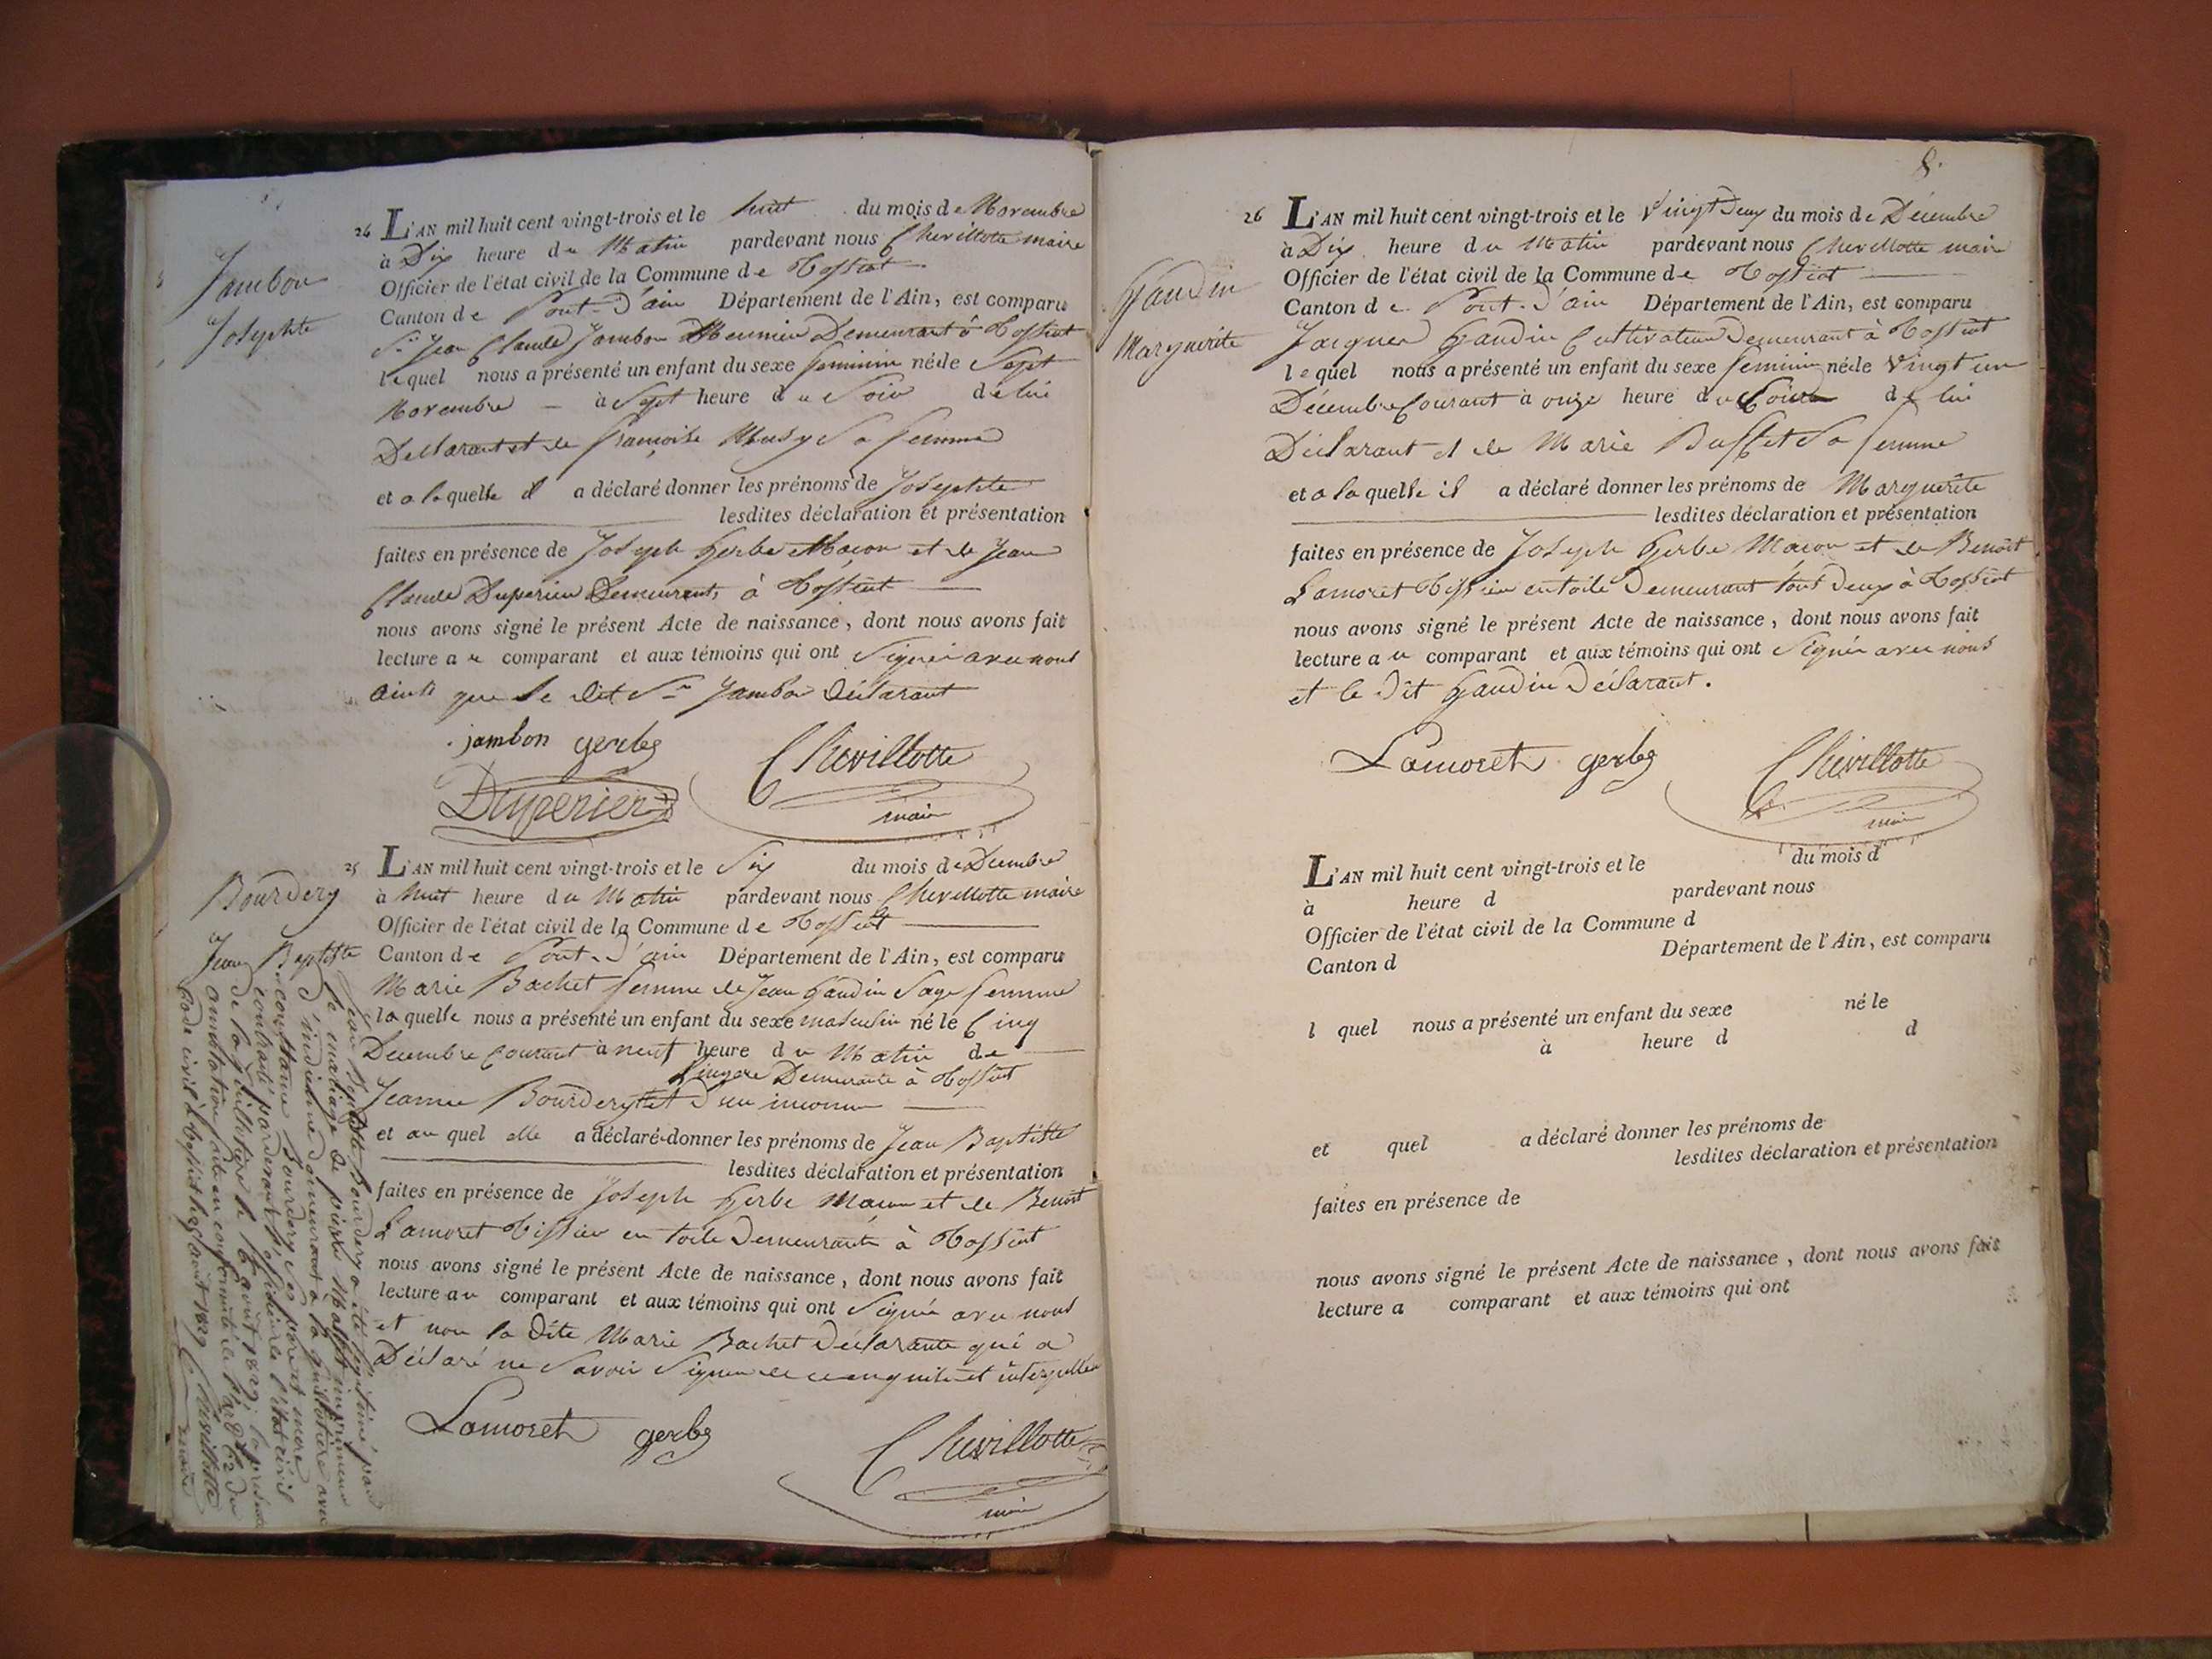 Jambon
Josephte
24 L'AN mil huit cent vingt-trois et le huit du mois de Novembre
à Dix heure du Matin pardevant nous Chevillotte maire
Officier de l'état civil de la Commune de Tossiat
Canton de Pont-d'ain Département de l'Ain, est comparu
Sr Jean Claude Jambon Meunier Demeurant à Tossiat
lequel nous a présenté un enfant du sexe feminin né le Sept
Novembre à Sept heure du Soir de lui
Déclarant et de françoise Musy Sa femme
et a laquelle il a déclaré donner les prénoms de Josephte
lesdites déclaration et présentation
faites en présence de Joseph Gerbe Macon et de Jean
Claude Duperier Demeurants à Tossiat
nous avons signé le présent Acte de naissance, dont nous avons fait
lecture au comparant et aux témoins qui ont Signés avec nous
ainsi que le dit Sr Jambon Déclarant
jambon gerbe Chevillotte
Duperier maire
Bourdery
Jean Baptiste
25 L'AN mil huit cent vingt-trois et le Six du mois de Décembre
à huit heure du Matin pardevant nous Chevillotte maire
Officier de l'état civil de la Commune de Tossiat
Canton de Pont-d'ain Département de l'Ain, est comparu
Marie Bachet femme de Jean Gaudin Sage femme
laquelle nous a présenté un enfant du sexe masculin né le Cinq
Decembre Courant à neuf heure du Matin de
Lingere Demeurante à Tossiat
Jeanne Bourdery et d'un inconnu
et au quel elle a déclaré donner les prénoms de Jean Baptiste
lesdites déclaration et présentation
faites en présence de Joseph Gerbe Macon et de Benoit
Lamoret Tissier en toile Demeurants à Tossiat
nous avons signé le présent Acte de naissance, dont nous avons fait
lecture au comparant et aux témoins qui ont Signés avec nous
et non la dite Marie Bachet Déclarante qui a
Déclaré ne Savoir Signer de ce enquise et interpellée
Lamoret gerbe Chevillotte
maire
Jean Baptiste Bourdery a été légitimé par
le mariage de pierre imprimeur
d'indienne demeurant à la guillotière avec
constance Bourdery ses père et mere
contracté pardevant l'officier de l'état civil
de la guillotière le août 1829. la présente
annotation faite en conformité de l'art 62 du
Code civil à Tossiat le août 1829 Chevillotte
maire
8.
Gaudin
Marguerite
26 L'AN mil huit cent vingt-trois et le vingt Deux du mois de Décembre
à Dix heure du Matin pardevant nous Chevillotte maire
Officier de l'état civil de la Commune de Tossiat
Canton de Pont-d'ain Département de l'Ain, est comparu
Jacques Gaudin Cultivateur Demeurant à Tossiat
lequel nous a présenté un enfant du sexe feminin né le vingt un
Décembre Courant à onze heure du Soir de lui
Déclarant et de Marie Buffet Sa femme
et a laquelle il a déclaré donner les prénoms de Marguerite
lesdites déclaration et présentation
faites en présence de Joseph Gerbe Macon et de Benoit
Lamoret Tissier en toile Demeurant tout Deux à Tossiat
nous avons signé le présent Acte de naissance, dont nous avons fait
lecture au comparant et aux témoins qui ont Signés avec nous
et le dit Gaudin Déclarant.
Lamoret gerbe Chevillotte
maire
L'AN mil huit cent vingt-trois et le du mois d
à heure d pardevant nous
Officier de l'état civil de la Commune d
Canton d Département de l'Ain, est comparu
l quel nous a présenté un enfant du sexe né le
à heure d d
et quel a déclaré donner les prénoms de
lesdites déclaration et présentation
faites en présence de
nous avons signé le présent Acte de naissance, dont nous avons fait
lecture a comparant et aux témoins qui ont